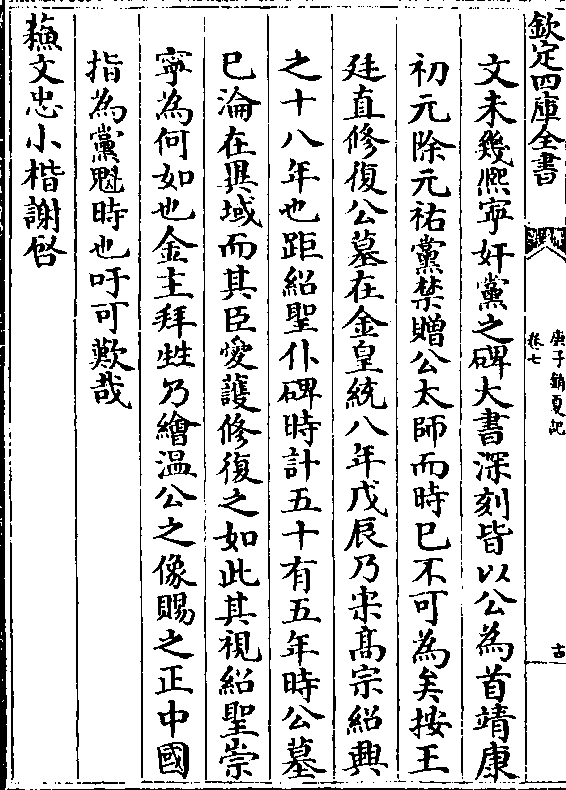 欽定四庫全書
庚子銷夏記
卷七
古
文未幾熈寧奸黨之碑大書深刻皆以公為首靖康
初元除元祐黨禁贈公太師而時已不可為矣按王
廷直修復公墓在金皇統八年戊辰乃宋髙宗紹興
之十八年也距紹聖仆碑時計五十有五年時公墓
已淪在異域而其臣愛護修復之如此其視紹聖崇
寧為何如也金主拜甡乃繪温公之像賜之正中國
指為黨魁時也吁可歎哉
蘓文忠小楷謝啓